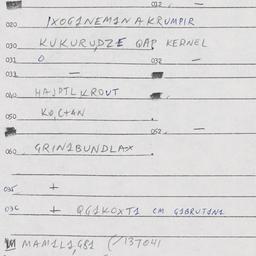 012. —
020 IXOGINEMINAKRUMPIR
030 KUKURUDZE QAP KERNEL
031 O 032 —
033 —
040 HAJPTLKROUT
050 KO,CTAN
052. —
060 GRIN1BUNDLAX
035 +
036 + QG1KOXT1 CM G1BRUT1N1
MAM1L1,GB1 (/137041